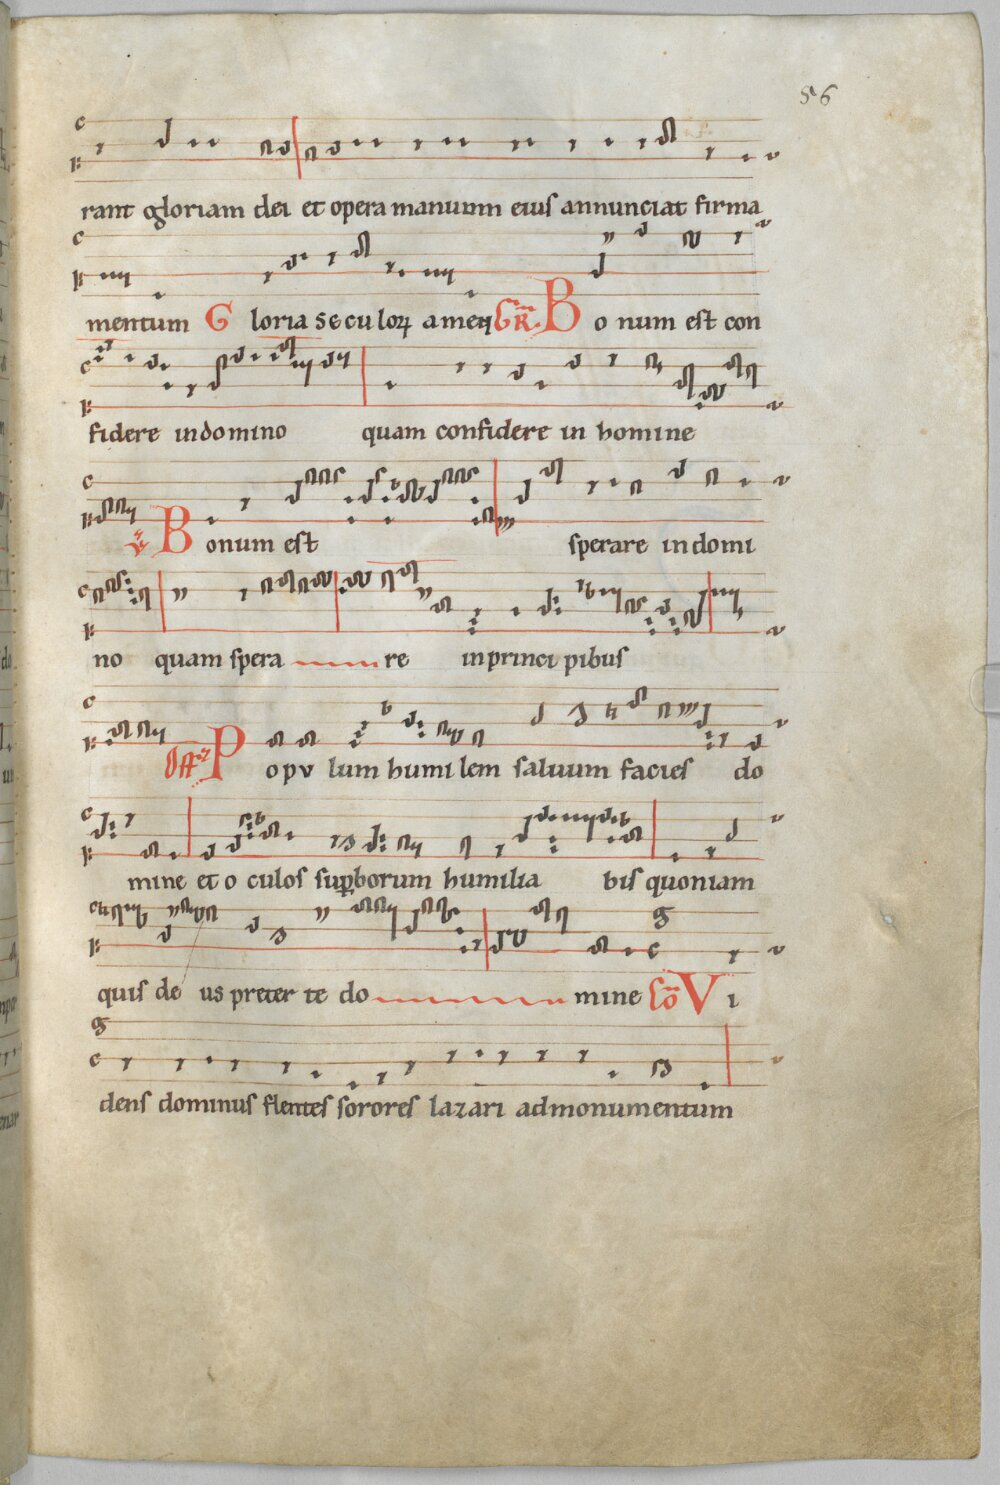 56
rant gloriam dei et opera manuum eius annunciat firma
mentum G loria seculoꝝ amen Gꝶ. B o num est con
fidere indomino quam confidere in homine
℣ B onum est sperare indomi
no quam spera re inprinci pibus
Off P opv lum humi lem saluum facies do
mine et o culos suꝑborum humilia bis quoniam
quis de us preter te do mine Cō V i
dens dominus flentes sorores lazari admonumentum